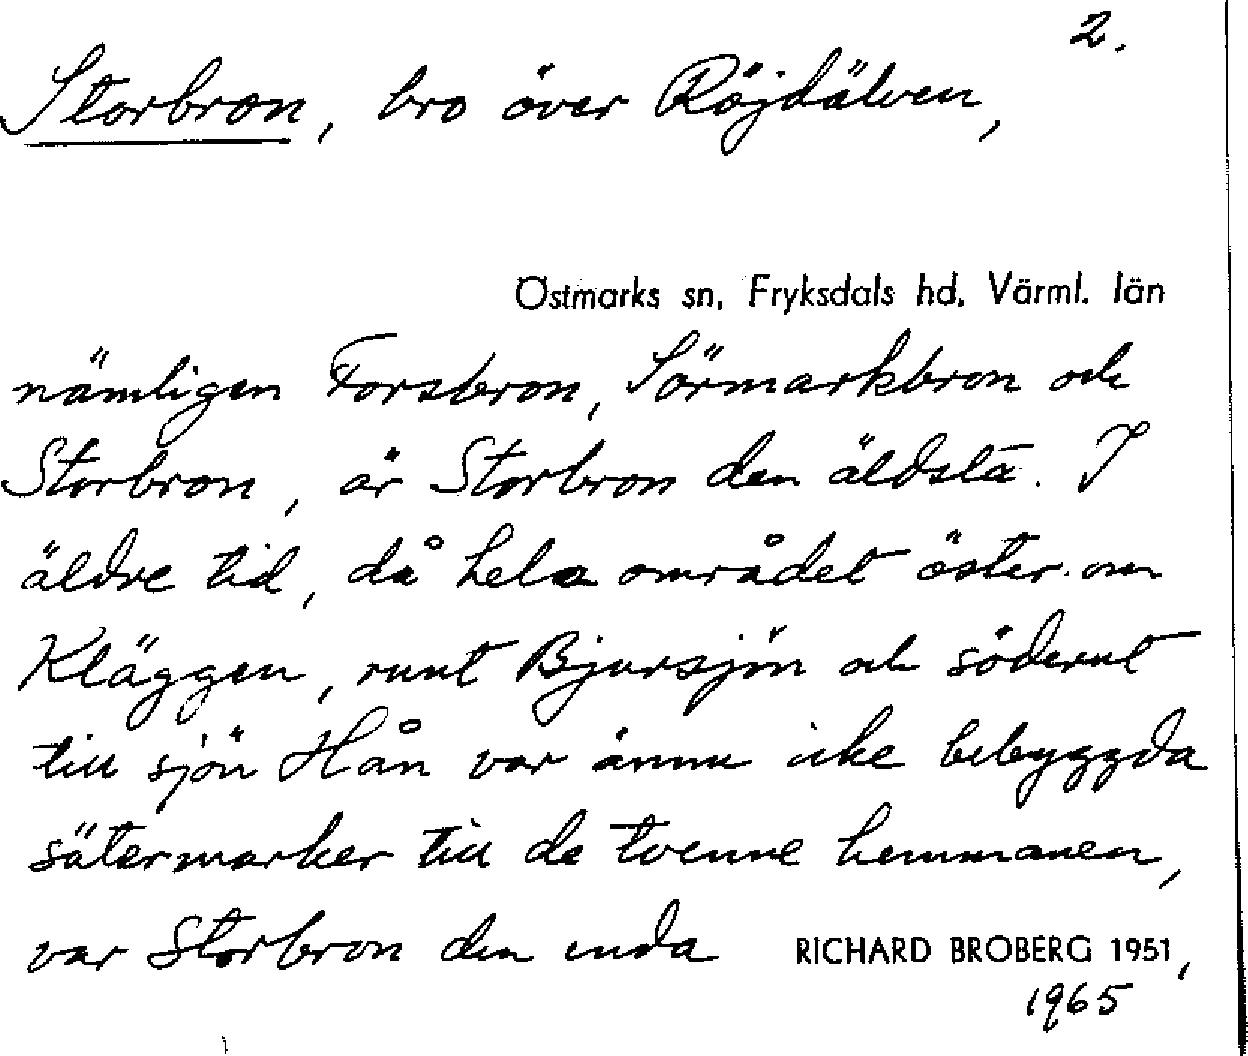 2.
Storbron, bro över Röjdälven,
Östmarks sn, Fryksdals hd, Värml. län
nämligen Forsbron, Sörmarkbron och
Storbron, är Storbron den äldsta. I
äldre tid, då hela området öster om
Kläggen, runt Bjursjön och söderut
till sjön Hån var ännu icke bebyggda
sätermarker till de tvenne hemmanen,
var Storbron den enda
RICHARD BROBERG 1951,
1965